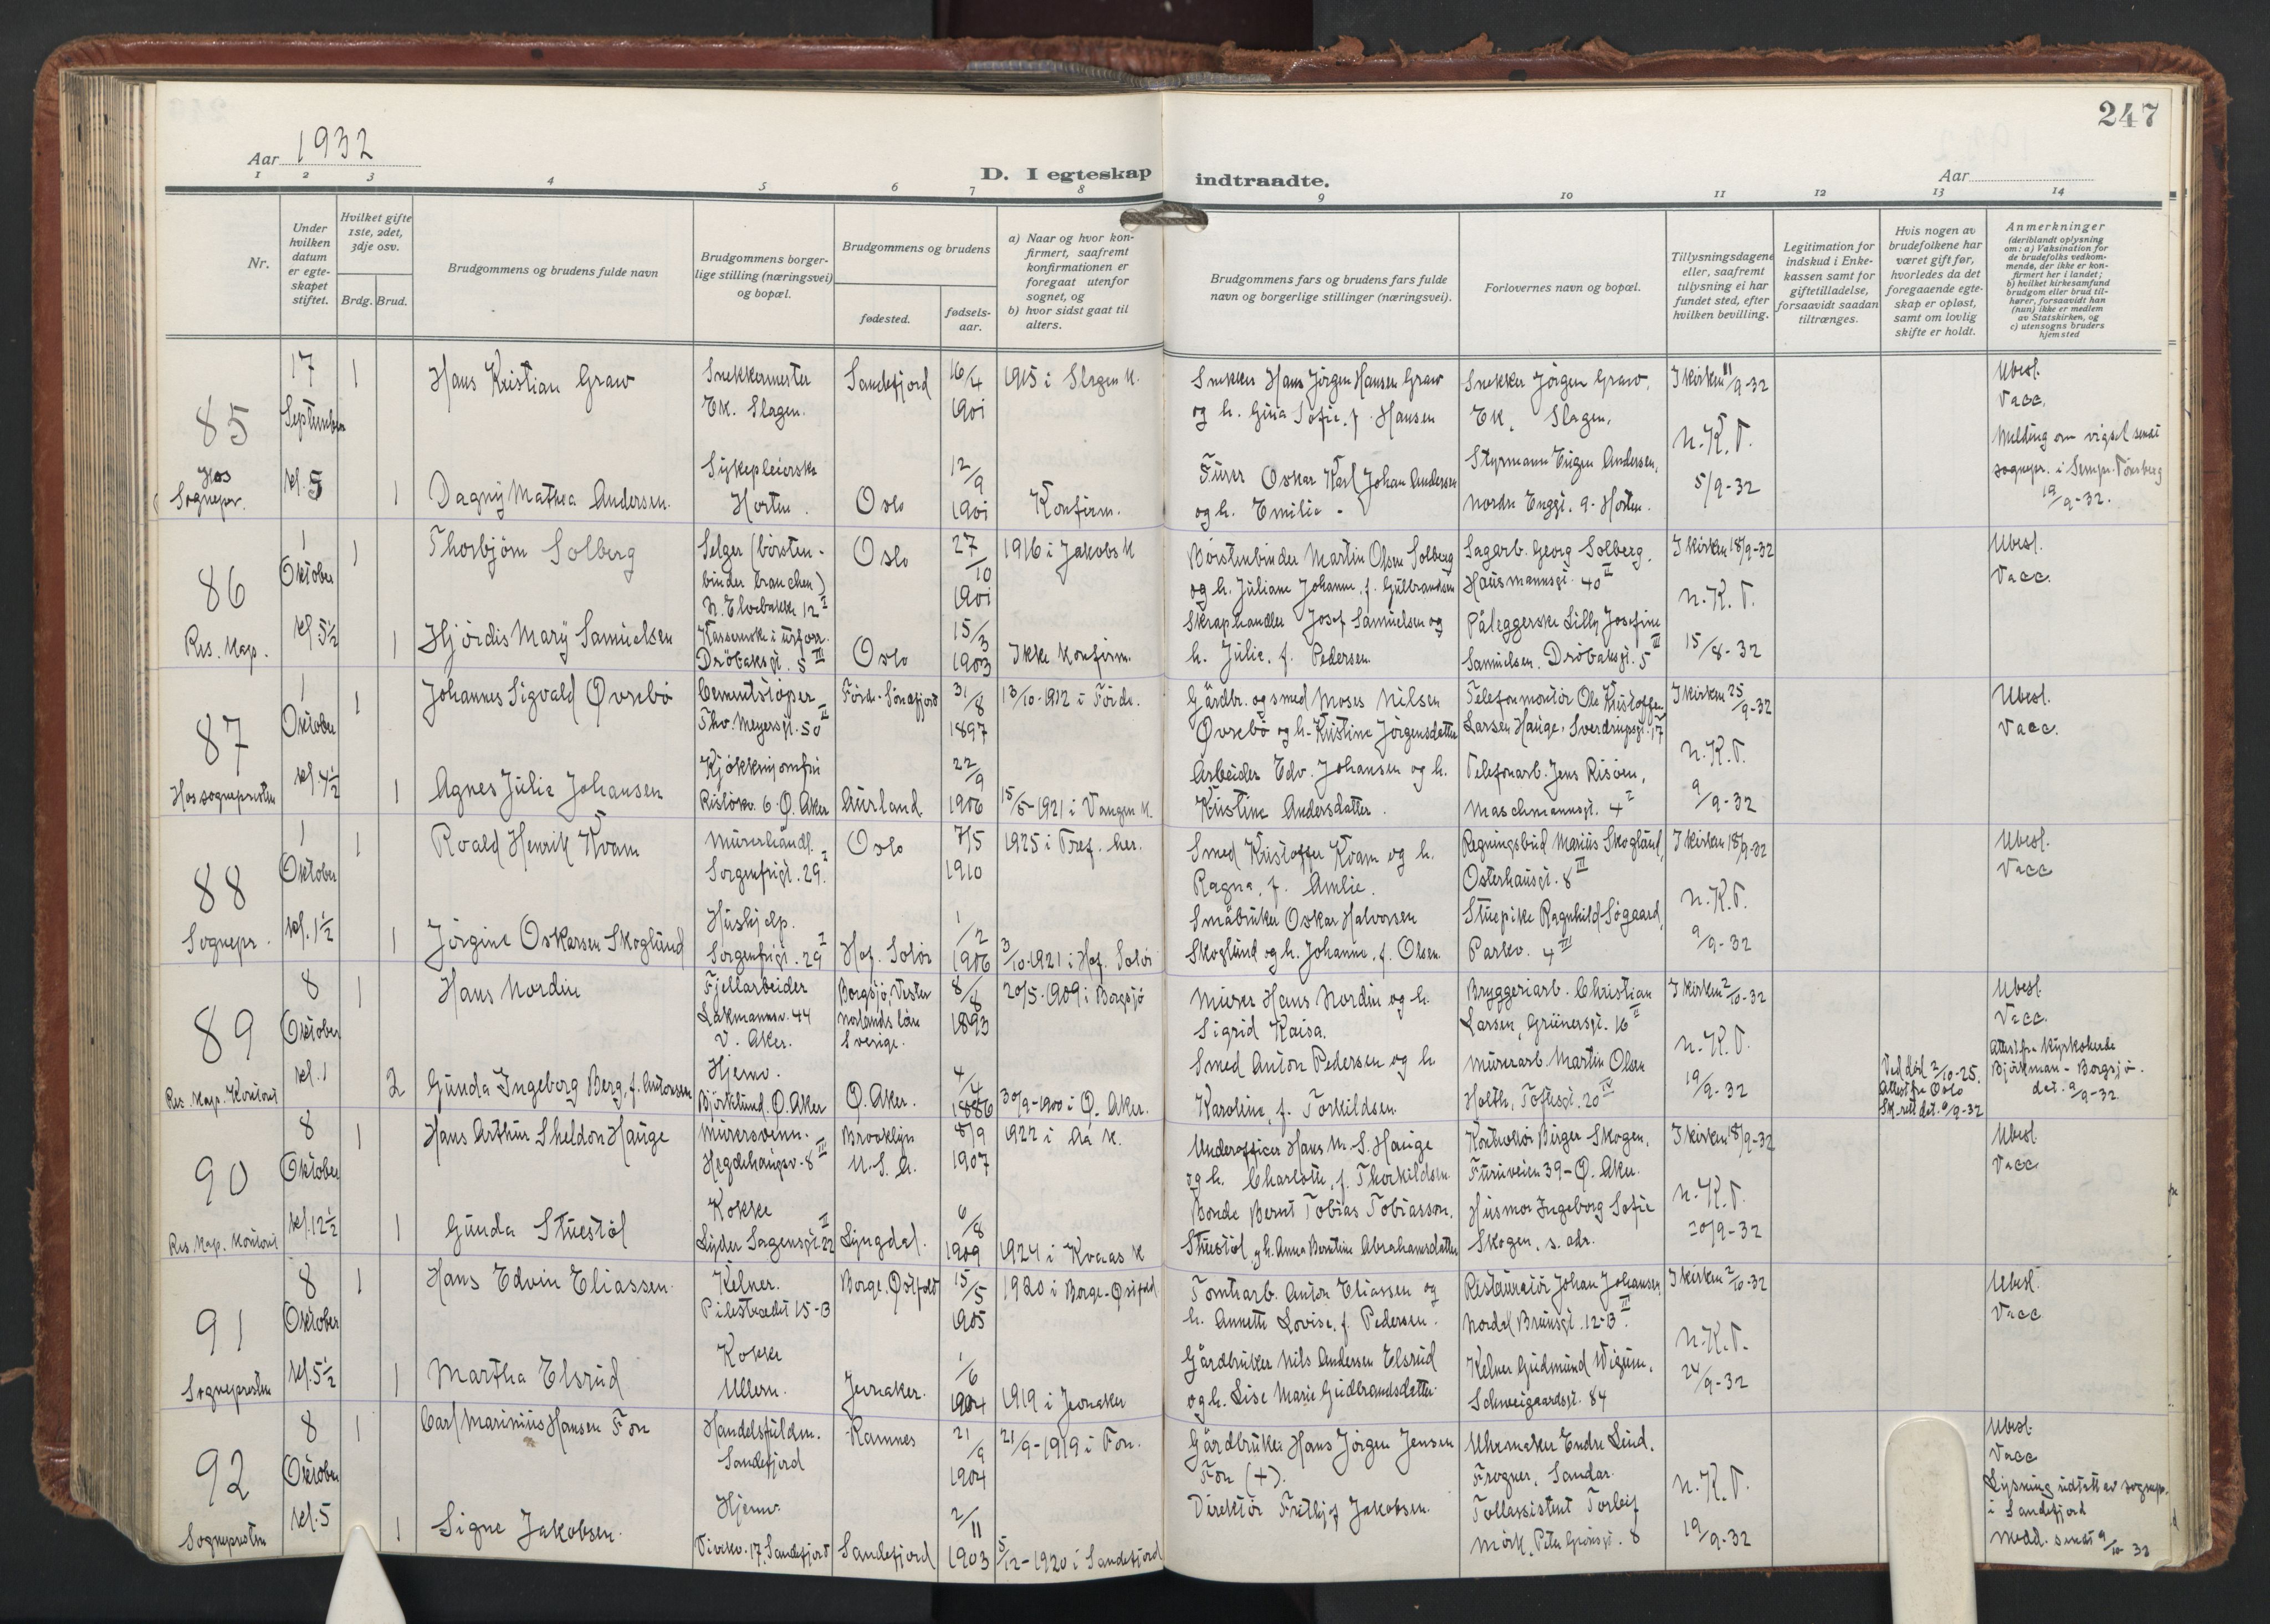 247
Aar 1932
D. I egteskap indtraadte.
Aar
1 2 3 4 5 6 7 8 9 10 11 12 13 14
Nr.
Under hvilken datum er egteskapet stiftet.
Hvilket gifte 1ste, 2det, 3dje osv.
Brdg. Brud.
Brudgommens og brudens fulde navn
Brudgommens borgerlige stilling (næringsvei) og bopæl.
Brudgommens og brudens
fødested.
fødselsaar.
a) Naar og hvor konfirmert, saafremt konfirmationen er foregaat utenfor sognet, og
b) hvor sidst gaat til alters.
Brudgommens fars og brudens fars fulde navn og borgerlige stillinger (næringsvei).
Forlovernes navn og bopæl.
Tillysningsdagene eller, saafremt tillysning ei har fundet sted, efter hvilken bevilling.
Legitimation for indskud i Enkekassen samt for giftetilladelse, forsaavidt saadan tiltrænges.
Hvis nogen av brudefolkene har været gift før, hvorledes da det foregaaende egteskap er opløst, samt om lovlig skifte er holdt.
Anmerkninger (deriblandt oplysning om: a) Vaksination for de brudefolks vedkommende, der ikke er konfirmert her i landet; b) hvilket kirkesamfund brudgom eller brud tilhører, forsaavidt han (hun) ikke er medlem av Statskirken, og c) utensogns bruders hjemsted
85 Hos Sognepr.
17 September kl. 5
1 Hans Kristian Graw
Snekkermester Ek. Slagen.
Sandefjord 16/4 1901
1915 i Slagen K.
Snekker Hans Jörgen Hansen Graw
og h. Gina Sofie, f. Hansen
Snekker Jörgen Graw,
Ek, Slagen.
I kirken 11/9-32
Ubesl.
Vacc.
n.K.T.
Melding om vigsel sendt
sognepr. i Sem pr. Tönsberg
19/9-32.
1 Dagny Mathea Andersen.
Sykepleierske Horten.
Oslo 12/9 1901
Konfirm.
Furer Oskar Karl Johan Andersen
og h. Emilie -
Styrmann Eugen Andersen,
Nordre Enggt. 9 - Horten.
5/9-32
86 Res. kap.
1 Oktober kl. 5½
1 Thorbjörn Solberg
Selger (börstenbinder branchen)
N. Elvebakke 12 I
Oslo 27/10 1901
1916 i Jakobs K
Börstenbinder Martin Olsen Solberg
og h. Juliane Johanne, f. Gulbrandsen
Sagarb. Georg Solberg,
Hausmannsgt. 40 II
I kirken 18/9-32
n.K.T.
Ubesl.
Vacc.
1 Hjördis Mary Samuelsen
Dröbaksgt. 5 III
Oslo 15/3 1903
Ikke konfirm.
Skraphandler Josef Samuelsen og
h. Julie, f. Pedersen.
Påleggerske Lilly Josefine
Samuelsen, Dröbaksgt. 5 III
15/8-32
87 Hos sognepresten
1 Oktober kl. 4½
1 Johannes Sigvald Øvrebö
Cementstöper
Thv. Meyersgt. 50 II
Förde - Söndfjord 31/8 1897
13/10-1912 i Förde.
Gårdbr. og smed Moses Nilsen
Øvrebö og h. Kristine Jörgensdatter
Telefonmontör Ole Kristoffer
Larsen Hauge, Sverdrupsgt. 17
I kirken 25/9-32
n.K.T.
Ubesl.
Vacc.
1 Agnes Julie Johansen
Kjökkenjomfru
Rislökv. 6 Ø. Aker
Aurland 22/9 1906
15/5-1921 i Vangen K.
Arbeider Edv. Johansen og h.
Kristine Andersdatter.
Telefonarb. Jens Risöen,
Maschmannsgt. 4 I
9/9-32
88 Sognepr.
1 Oktober kl. 1½
1 Roald Henrik Kvam
Murerhåndl.
Sorgenfrigt. 29 I
Oslo 7/5 1910
1925 i Tref. her.
Smed Kristoffer Kvam og h.
Ragna, f. Amlie.
Regningsbud Marius Skoglund,
Osterhausgt. 8 III
I kirken 18/9-32
n.K.T.
Ubesl.
Vacc
1 Jörgine Oskarsen Skoglund
Hushjelp.
Sorgenfrigt. 29 I
Hof. Solör 1/2 1906
3/10-1921 i Hof. Solör
Småbruker Oskar Halvorsen
Skoglund og h. Johanne, f. Olsen.
Stuepike Ragnhild Sögaard,
Parkv. 4 III
9/9-32
89 Res. Kap. Kontoret
8 Oktober kl. 1
1 Hans Nordin
Fjellarbeider
Lakmannsv. 44
V. Aker.
Borgsjö, Vester
Norlands län
Sverige.
8/8 1893
20/5-1909 i Borgsjö
Murer Hans Nordin og h.
Sigrid Kaisa.
Bryggeriarb. Christian
Larsen, Grünersgt. 16 II
I kirken 2/10-32
n.K.T.
Ubesl
Vacc.
Attest fra Kyrkoherde
Björkman - Borgsjö.
dat. 9/9-32
2 Gunda Ingeborg Berg, f. Antonsen
Hjemv.
Björklund. Ø. Aker
Ø. Aker. 4/4 1886
30/9-1900 i Ø. Aker.
Smed Anton Pedersen og h
Karoline, f. Torkildsen
Murerarb. Martin Olsen
Holth, Toftesgt. 20 IV
19/9-32
Ved död 2/10-25.
Attest fra Oslo
Sk.rett dat. 9/9-32
90 Res. Kap. kontoret
8 Oktober kl. 12½
1 Hans Arthur Sheldon Hauge
Murersvenn.
Hegdehaugsv. 8 III
Brooklyn U.S.A.
8/9 1907
1922 i Aa K.
Underofficer Hans M. S. Hauge
og h. Charlotte, f. Thorkildsen
Kontrollör Birger Skogen,
Furuveien 39 - Ø. Aker.
I kirken 18/9-32
n.K.T.
Ubesl.
Vacc
1 Gunda Stuestöl
Kokke
Lyder Sagensgt. 22 II
Lyngdal. 6/8 1909
1924 i Kvaas K
Bonde Bernt Tobias Tobiasson,
Stuestöl og h. Anna Bertine Abrahamsdatter
Husmor Ingeborg Sofie
Skogen, s. adr.
20/9-32
91 Sognepresten
8 Oktober kl. 5½
1 Hans Edvin Eliassen.
Kelner.
Pilestredet 15-B
Borge. Østfold 15/5 1905
1920 i Borge - Østfold
Tomtarb. Anton Eliassen og
h. Annette Lovise, f. Pedersen.
Restauratör Johan Johansen
Nordal Brunsgt. 12-B III
I kirken 2/10-32
n.K.T.
Ubesl.
Vacc
1 Martha Elsrud
Kokke
Ullern.
Jevnaker. 1/6 1904
1919 i Jevnaker
Gårdbruker Nils Andersen Elsrud
og h. Lise Marie Gudbrandsdatter
Kelner Gudmund Wigum,
Schweigaardsgt. 84
24/9-32
92 Sognepresten
8 Oktober kl. 5
1 Carl Marinius Hansen Fon
Handelsfuldm.
Sandefjord
Ramnes 21/9 1904
21/9-1919 i Fon.
Gårdbruker Hans Jörgen Jensen
Fon (+).
Uhrmaker Endre Lind,
Frogner, Sandar.
n.K.T.
Ubesl
Vacc
Lysning udstedt av sognepr.
i Sandefjord
Medd. sendt 9/10-32
1 Signe Jakobsen.
Hjemv.
17, Sandefjord
Sandefjord 2/11 1903
5/12-1920 i Sandefjord
Direktör Frithjof Jakobsen.
Tollassistent Torleif
Mörk, Peter Grönsgt. 8
19/9-32